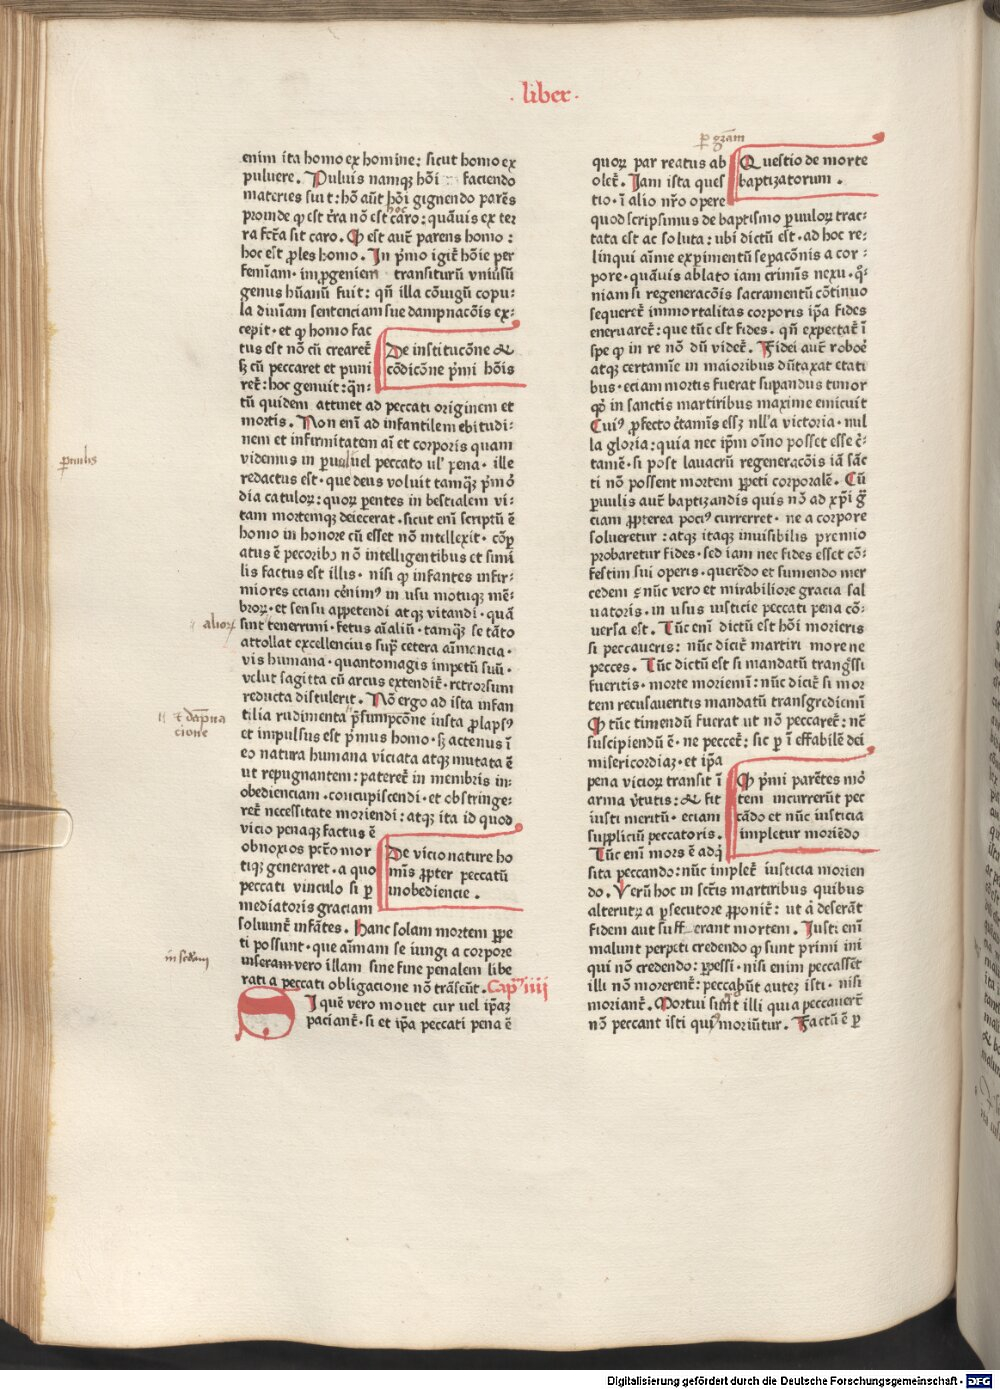 · liber ·
enim ita homo ex homine: sicut homo ex
puluere. Puluis namqꝫ hōi faciendo
materies fuit: hō aūt hōi gignendo parēs
proinde qꝫ est t̄ra nō est hoc caro: quāuis ex ter
ra fc̄ta sit caro. Qꝫ est aut̄ parens homo:
hoc est ꝓles homo. In p̄mo igit̄ hōie per
femīam · in ꝓgeniem transiturū vniūsū
genus hūanū fuit: qn̄ illa cōiugū copu⸗
la diuīam sentenciam sue dampnacōis ex⸗
cepit · et qꝫ homo fac
tus est nō cū crearet̄
sꝫ cū peccaret et puni
ret̄: hoc genuit: qn̄⸗
De institucōne &
cōdicōne p̄mi hōis
tū quidem attinet ad peccati originem et
mortis. Non enī ad infantilem ebitudi⸗
nem et infirmitatem aī et corporis quam
videmus in ꝑuul uel peccato ul' pena · ille
ꝑuulis
redactus est · que deus voluit tamqꝫ p̄mō
dia catuloꝝ: quoꝝ ꝑentes in bestialem vi⸗
tam mortemqꝫ deiecerat · sicut enī scriptū ē
homo in honore cū esset nō intellexit · cōꝑ
atus ē pecoribꝰ nō intelligentibus et simi
lis factus est illis · nisi qꝫ infantes infir⸗
miores eciam cernimꝰ in usu motuqꝫ mē⸗
broꝝ · et sensu appetendi atqꝫ vitandi · quā
alioꝝ
sint tenerrimi · fetus aīaliū · tamqꝫ se tāto
attollat excellencius suꝑ cetera aīmancia ·
vis humana · quantomagis impetū suū ·
velut sagitta cū arcus extendit̄ · retrorsum
reducta distulerit. Nō ergo ad ista infan
tilia rudimenta p̄sumpcōne iusta ꝓlapsꝰ
t dāpna
cione
et impulsus est p̄mus homo · sꝫ actenus ī
eo natura humana viciata atqꝫ mutata ē
ut repugnantem: pateret̄ in membris in⸗
obedienciam · concupiscendi · et obstringe⸗
ret̄ necessitate moriendi: atqꝫ ita id quod
vicio penaqꝫ factus ē
obnoxios pctō mor
tiqꝫ generaret · a quo
peccati vinculo si ꝑ
mediatoris graciam
De vicio nature ho
mīs ꝓpter peccatū
inobediencie .
soluunt̄ infātes. Hanc solam mortem ꝑpe
ti possunt · que aīmam se iungi a corpore
in scd̄am
miseram vero illam sine fine penalem libe
rati a peccati obligacione nō trāseūt. Cap̄ iiii
I quē vero mouet cur uel ip̄aꝫ
paciant̄ · si et ip̄a peccati pena ē
ꝑ grām
quoꝝ par reatus ab
olet̄. Iam ista ques
tio · ī alio nr̄o opere
Questio de morte
baptizatorum .
quod scripsimus de baptismo ꝑuuloꝝ trac⸗
tata est ac soluta: ubi dictū est · ad hoc re⸗
linqui aīme expimentū sepacōnis a cor⸗
pore · quāuis ablato iam crimīs nexu · qͦ⸗
niam si regeneracōis sacramentū cōtinuo
sequeret̄ immortalitas corporis ip̄a fides
eneruaret̄: que tūc est fides · qn̄ expectat̄ ī
spe qꝫ in re nō dū videt̄. Fidei aut̄ roboē
atqꝫ certamīe in maioribus dūtaxat etati
bus · eciam mortis fuerat suꝑandus timor
qꝫ in sanctis martiribus maxime emicuit
Cuiꝰ ꝓfecto c̄tamīs essꝫ nll'a victoria · nul
la gloria: quia nec ip̄m oīno posset esse c̄⸗
tamē · si post lauacrū regeneracōis iā sāc
ti nō possent mortem ꝑpeti corporalē. Cū
ꝑuulis aut̄ baptizandis quis nō ad xp̄i ḡ
ciam ꝓpterea pociꝰ curreret · ne a corpore
solueretur: atqꝫ itaqꝫ inuisibilis premio
probaretur fides · sed iam nec fides esset cō⸗
festim sui operis · querēdo et sumendo mer
cedem · nūc vero et mirabiliore gracia sal
uatoris · in usus iusticie peccati pena cō⸗
uersa est. Tūc enī dictū est hōi morieris
si peccaueris: nūc dicit̄ martiri morene
pecces. Tūc dictū est si mandatū trangssi
fueritis · morte moriemī: nūc dicit̄ si mor
tem recusaueritis mandatū transgredimī
Qꝫ tūc timendū fuerat ut nō peccaret̄: nc̄
suscipiendū ē · ne peccet̄: sic ꝑ ī effabilē dei
misericordiaꝫ · et ip̄a
pena vicioꝝ transit ī
arma v̄tutis: & fit
iusti meritū · eciam
suppliciū peccatoris.
Tūc enī mors ē adq̄
Qꝫ p̄mi parētes mō
tem incurrerūt pec
cādo et nūc iusticia
impletur moriēdo
sita peccando: nūc implet̄ iusticia morien
do. Verū hoc in scr̄is martiribus quibus
alterutꝝ a ꝑsecutore ꝓponit̄: ut ā deserāt
fidem aut sufferant mortem. Iusti enī
malunt perpeti credendo qꝫ sunt primi ini
qui nō credendo: ꝑpessi · nisi enim peccassēt
illi nō morerent̄: peccabūt auteꝫ isti · nisi
moriant̄. Mortui sunt illi quia peccauerūt
nō peccant isti quꝫ moriūtur. Factū ē ꝑ
Digitalisierung gefördert durch die Deutsche Forschungsgemeinschaft - DFG